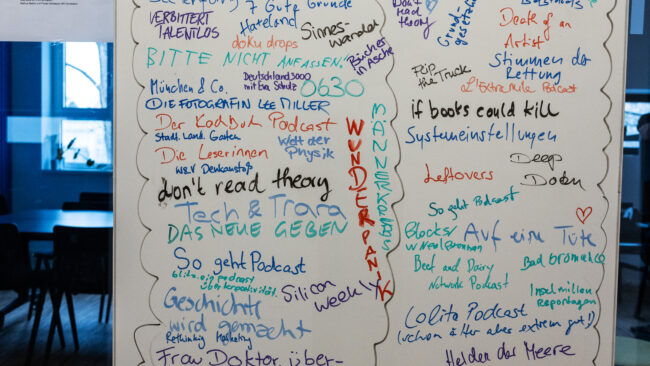 7 Gute Gründe
VERBITTERT
TALENTLOS
Hateland
doku drops
Sinnes-
wandel
BITTE NICHT ANFASSEN!
Bücher
in Asche
München & Co.
Deutschland3000
mit Eva Schulz
0630
DIE FOTOGRAFIN LEE MILLER
Der Kochbuch Podcast
Stadt. Land. Garten
Welt der
Physik
Die Leserinnen
W&V Denkanstoß
don't read theory
Tech & Trara
DAS NEUE GEBEN
So geht Podcast
blitz-ein podcast
über kreativität.
Silicon
Weekly
Geschichte
wird gemacht
Rethinking Marketing
Frau Doktor, über-
WUNDERPANIK
don't
read
theory
Grund-
gesetz
Death of an
Artist
Stimmen der
Rettung
Flip
the Truck
if books could kill
Systemeinstellungen
Deep
Doom
Leftovers
So geht Podcast
Auf eine Tüte
Bad bromance
Beef and Dairy
Network Podcast
Inselmilieu
Reportagen
Lolita Podcast
(schon älter aber extrem gut!)
Helden der Meere